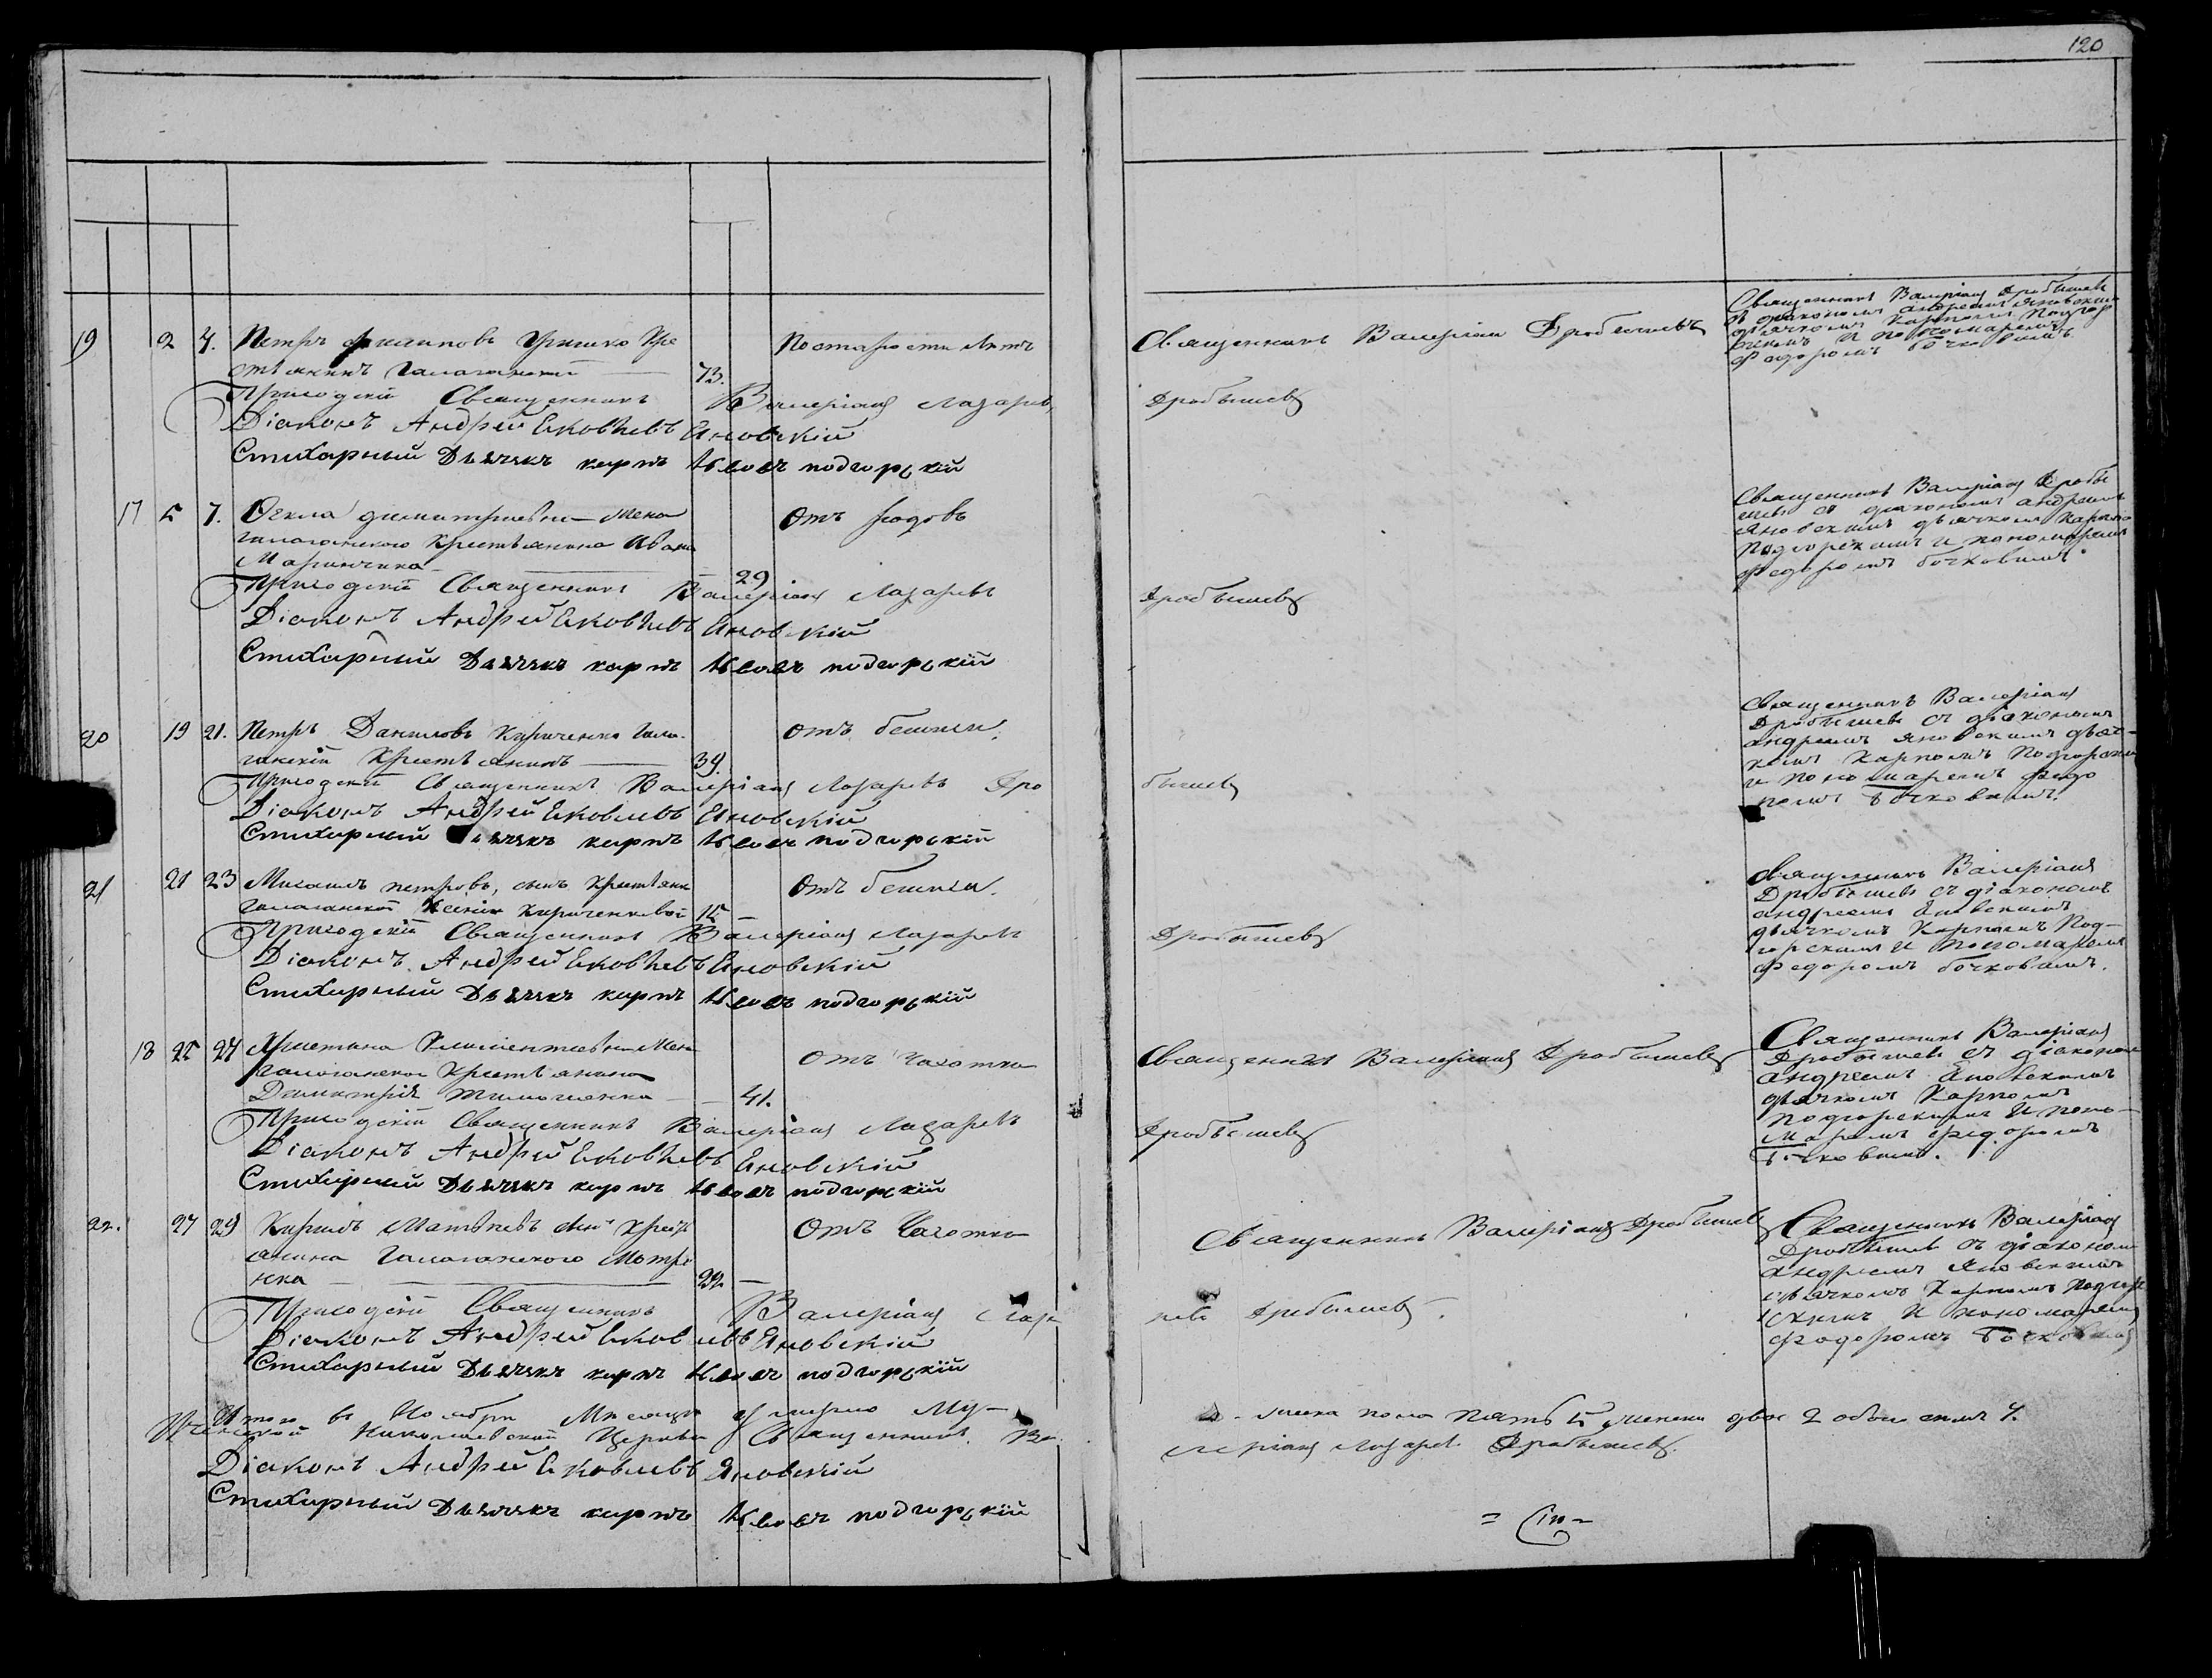 120
19 2 4. Петръ Филиповъ Гришко Кре
стьянинъ Галаганскій — 73. По старости лѣтъ
Священникъ Валеріанъ Дробышевъ
Священникъ Валеріанъ Дробышевъ
съ діакономъ Андреемъ Яновскимъ
дьячкомъ Карпомъ Подгор
скимъ и пономаремъ
Федоромъ Бочковымъ.
Приходскій Священникъ Валеріанъ Лазаревъ Дробышевъ
Діаконъ Андрей Яковлевъ Яновскій
Стихарный Дьячекъ карпъ подгорскій
17 5 7. Фекла Димитріевна жена
галаганского крестьянина Ивана
Маринчика — 29 Отъ родовъ
Священникъ Валеріанъ Дробы
шевъ съ діакономъ Андреемъ
Яновскимъ дьячкомъ Карпомъ
Подгорскимъ и пономаремъ
Федоромъ Бочковымъ.
Приходскій Священникъ Валеріанъ Лазаревъ Дробышевъ
Діаконъ Андрей Яковлевъ Яновскій
Стихарный Дьячекъ карпъ подгорскій
20 19 21. Петръ Даниловъ Кириченко Гала-
ганскій Крестьянинъ — 39. Отъ бешихи.
Священникъ Валеріанъ
Дробышевъ съ діакономъ
Андреемъ Яновскимъ дьяч-
комъ Карпомъ Подгорскимъ
и пономаремъ Федо
ромъ Бочковымъ.
Приходскій Священникъ Валеріанъ Лазаревъ Дробышевъ
Діаконъ Андрей Яковлевъ Яновскій
Стихарный Дьячекъ карпъ подгорскій
21 21 23 Михаилъ Петровъ, сынъ крестьянки
галаганской Ксеніи Кириченковой 15 — Отъ бешихи.
Священникъ Валеріанъ
Дробышевъ съ діакономъ
Андреемъ Яновскимъ
дьячкомъ Карпомъ Под-
горскимъ и пономаремъ
Федоромъ Бочковымъ.
Приходскій Священникъ Валеріанъ Лазаревъ Дробышевъ
Діаконъ Андрей Яковлевъ Яновскій
Стихарный Дьячекъ карпъ подгорскій
18 25 27 Христина Климентіевна жена
галаганского крестьянина
Димитрія — 41. Отъ чахотки
Священникъ Валеріанъ Дробышевъ
Священникъ Валеріанъ
Дробышевъ съ діакономъ
Андреемъ Яновскимъ
дьячкомъ Карпомъ
Подгорскимъ и поно-
маремъ Федоромъ
Бочковымъ.
Приходскій Священникъ Валеріанъ Лазаревъ Дробышевъ
Діаконъ Андрей Яковлевъ Яновскій
Стихарный Дьячекъ карпъ подгорскій
22. 27 29 Кирилъ Матѳѣевъ сынъ крестья
янина Галаганского — 22 — Отъ Чахотки
Священникъ Валеріанъ Дробышевъ
Священникъ Валеріанъ
Дробышевъ съ діакономъ
Андреемъ Яновскимъ
дьячкомъ Карпомъ Подгор
скимъ и пономаремъ
Федоромъ Бочковымъ
Приходскій Священникъ Валеріанъ Лаза ревъ Дробышевъ.
Діаконъ Андрей Яковлевъ Яновскій
Стихарный Дьячекъ карпъ подгорскій
Итого въ Ноябрѣ Мѣсяцѣ умерло му-жеска пола пять 5 женска двое 2 обоего 7.
Николаевской Церкви Священникъ Ва леріанъ Лазаревъ Дробышевъ.
Діаконъ Андрей Яковлевъ Яновскій
Стихарный Дьячекъ карпъ подгорскій